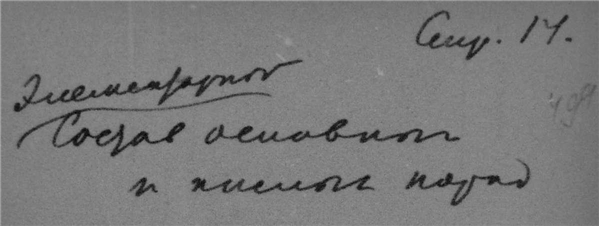 Стр. 14.
Элементарный
Состав основных
и кислых пород